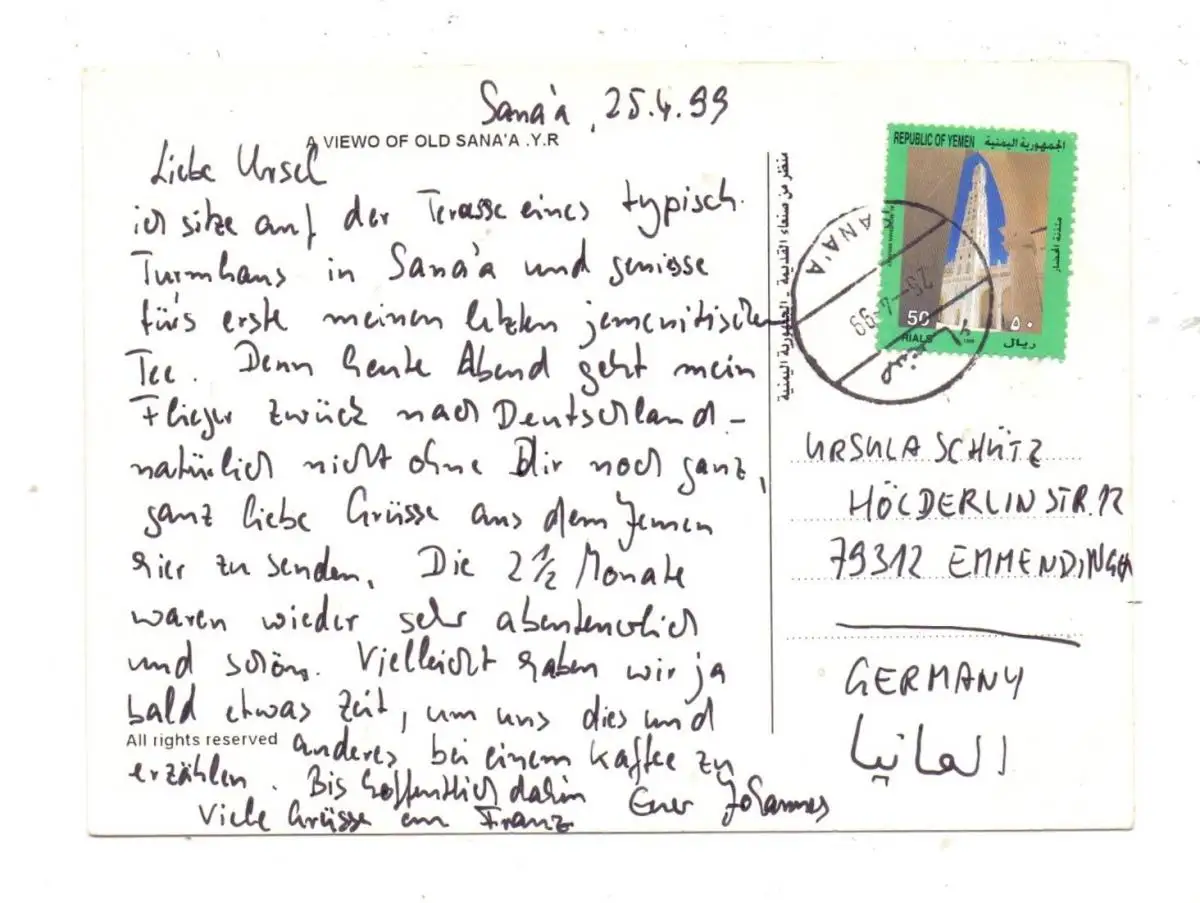 Sana'a, 25.4.99
A VIEWO OF OLD SANA'A .Y.R
Liebe Ursel
ich sitze auf der Terasse eines typisch.
Turmhaus in Sana'a und geniesse
für's erste meinen letzten jemenitischen
Tee. Denn heute Abend geht mein
Flieger zurück nach Deutschland –
natürlich nicht ohne Dir noch ganz,
ganz liebe Grüsse aus dem Jemen
hier zu senden. Die 2 1/2 Monate
waren wieder sehr abenteuerlich
und schön. Vielleicht haben wir ja
bald etwas Zeit, um uns dies und
All rights reserved
anderes bei einem Kaffee zu
erzählen. Bis hoffentlich dahin Euer Johannes
Viele Grüsse an Franz
منظر من صنعاء القديمة - الجمهورية اليمنية
REPUBLIC OF YEMEN الجمهورية اليمنية
مئذنة المحضار
50 ٥٠
RIALS ريال
SANA'A
25-4-99
صنعاء
URSULA SCHÜTZ
HÖLDERLINSTR. 12
79312 EMMENDINGEN
GERMANY
المانيا